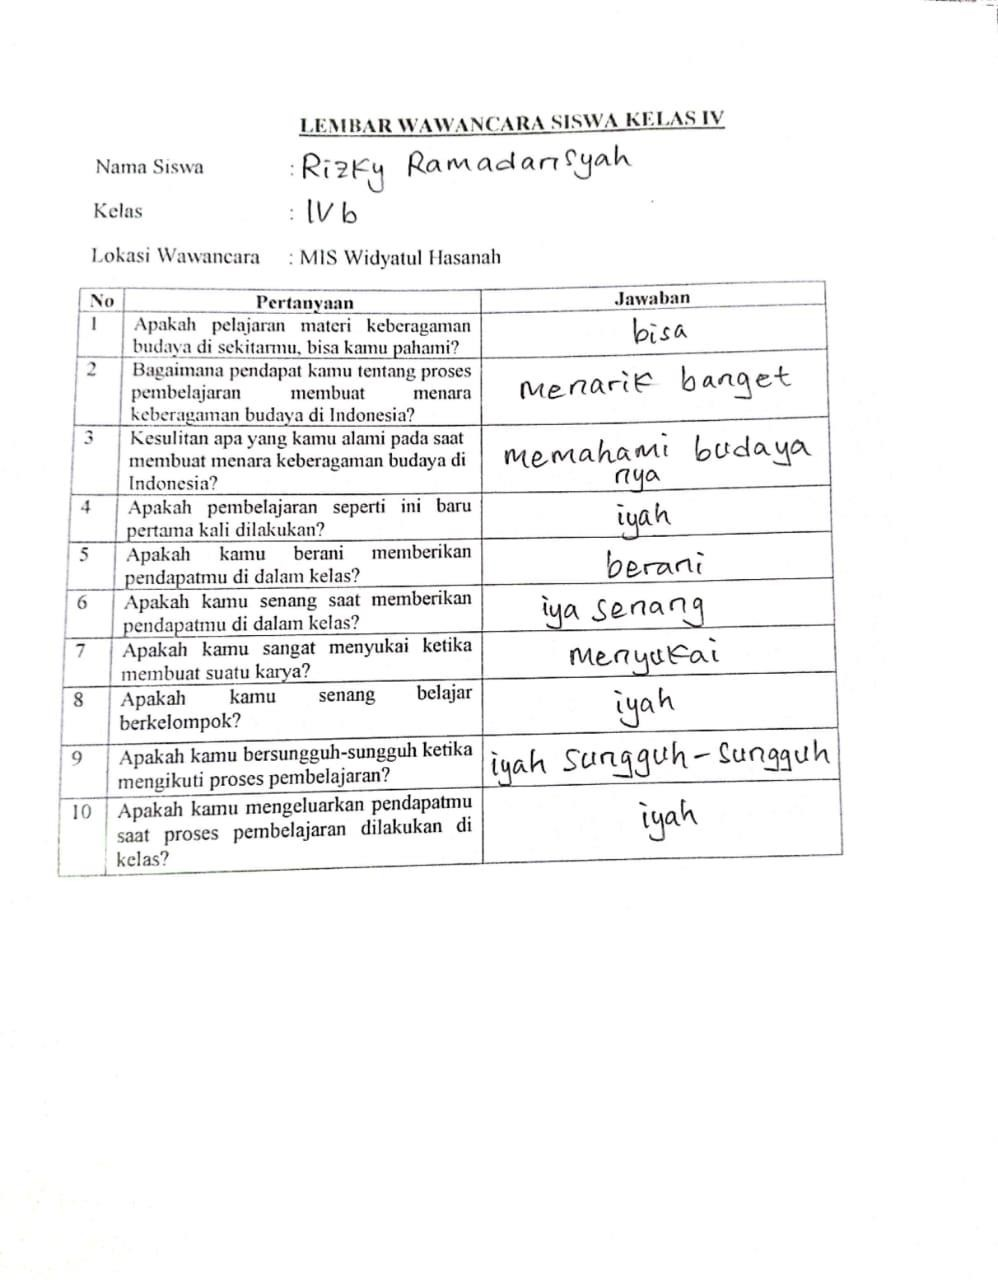 LEMBAR WAWANCARA SISWA KELAS IV
Nama Siswa : Rizky Ramadansyah
Kelas : IV b
Lokasi Wawancara : MIS Widyatul Hasanah
No Pertanyaan Jawaban
1 Apakah pelajaran materi keberagaman
budaya di sekitarmu, bisa kamu pahami?
bisa
2 Bagaimana pendapat kamu tentang proses
pembelajaran membuat menara
keberagaman budaya di Indonesia?
menarik banget
3 Kesulitan apa yang kamu alami pada saat
membuat menara keberagaman budaya di
Indonesia?
memahami budaya
nya
4 Apakah pembelajaran seperti ini baru
pertama kali dilakukan?
iyah
5 Apakah kamu berani memberikan
pendapatmu di dalam kelas?
berani
6 Apakah kamu senang saat memberikan
pendapatmu di dalam kelas?
iya senang
7 Apakah kamu sangat menyukai ketika
membuat suatu karya?
Menyukai
8 Apakah kamu senang belajar
berkelompok?
iyah
9 Apakah kamu bersungguh-sungguh ketika
mengikuti proses pembelajaran?
iyah sungguh-sungguh
10 Apakah kamu mengeluarkan pendapatmu
saat proses pembelajaran dilakukan di
kelas?
iyah